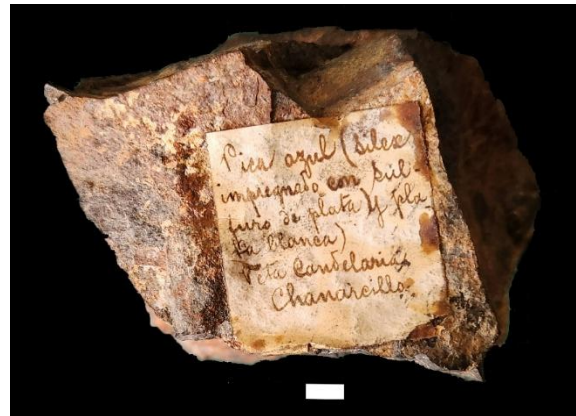 Pica azul (Silex
impregnado con Súl-
furo de plata y pla
ta blanca)
Veta Candelaria,
Chanarcillo.